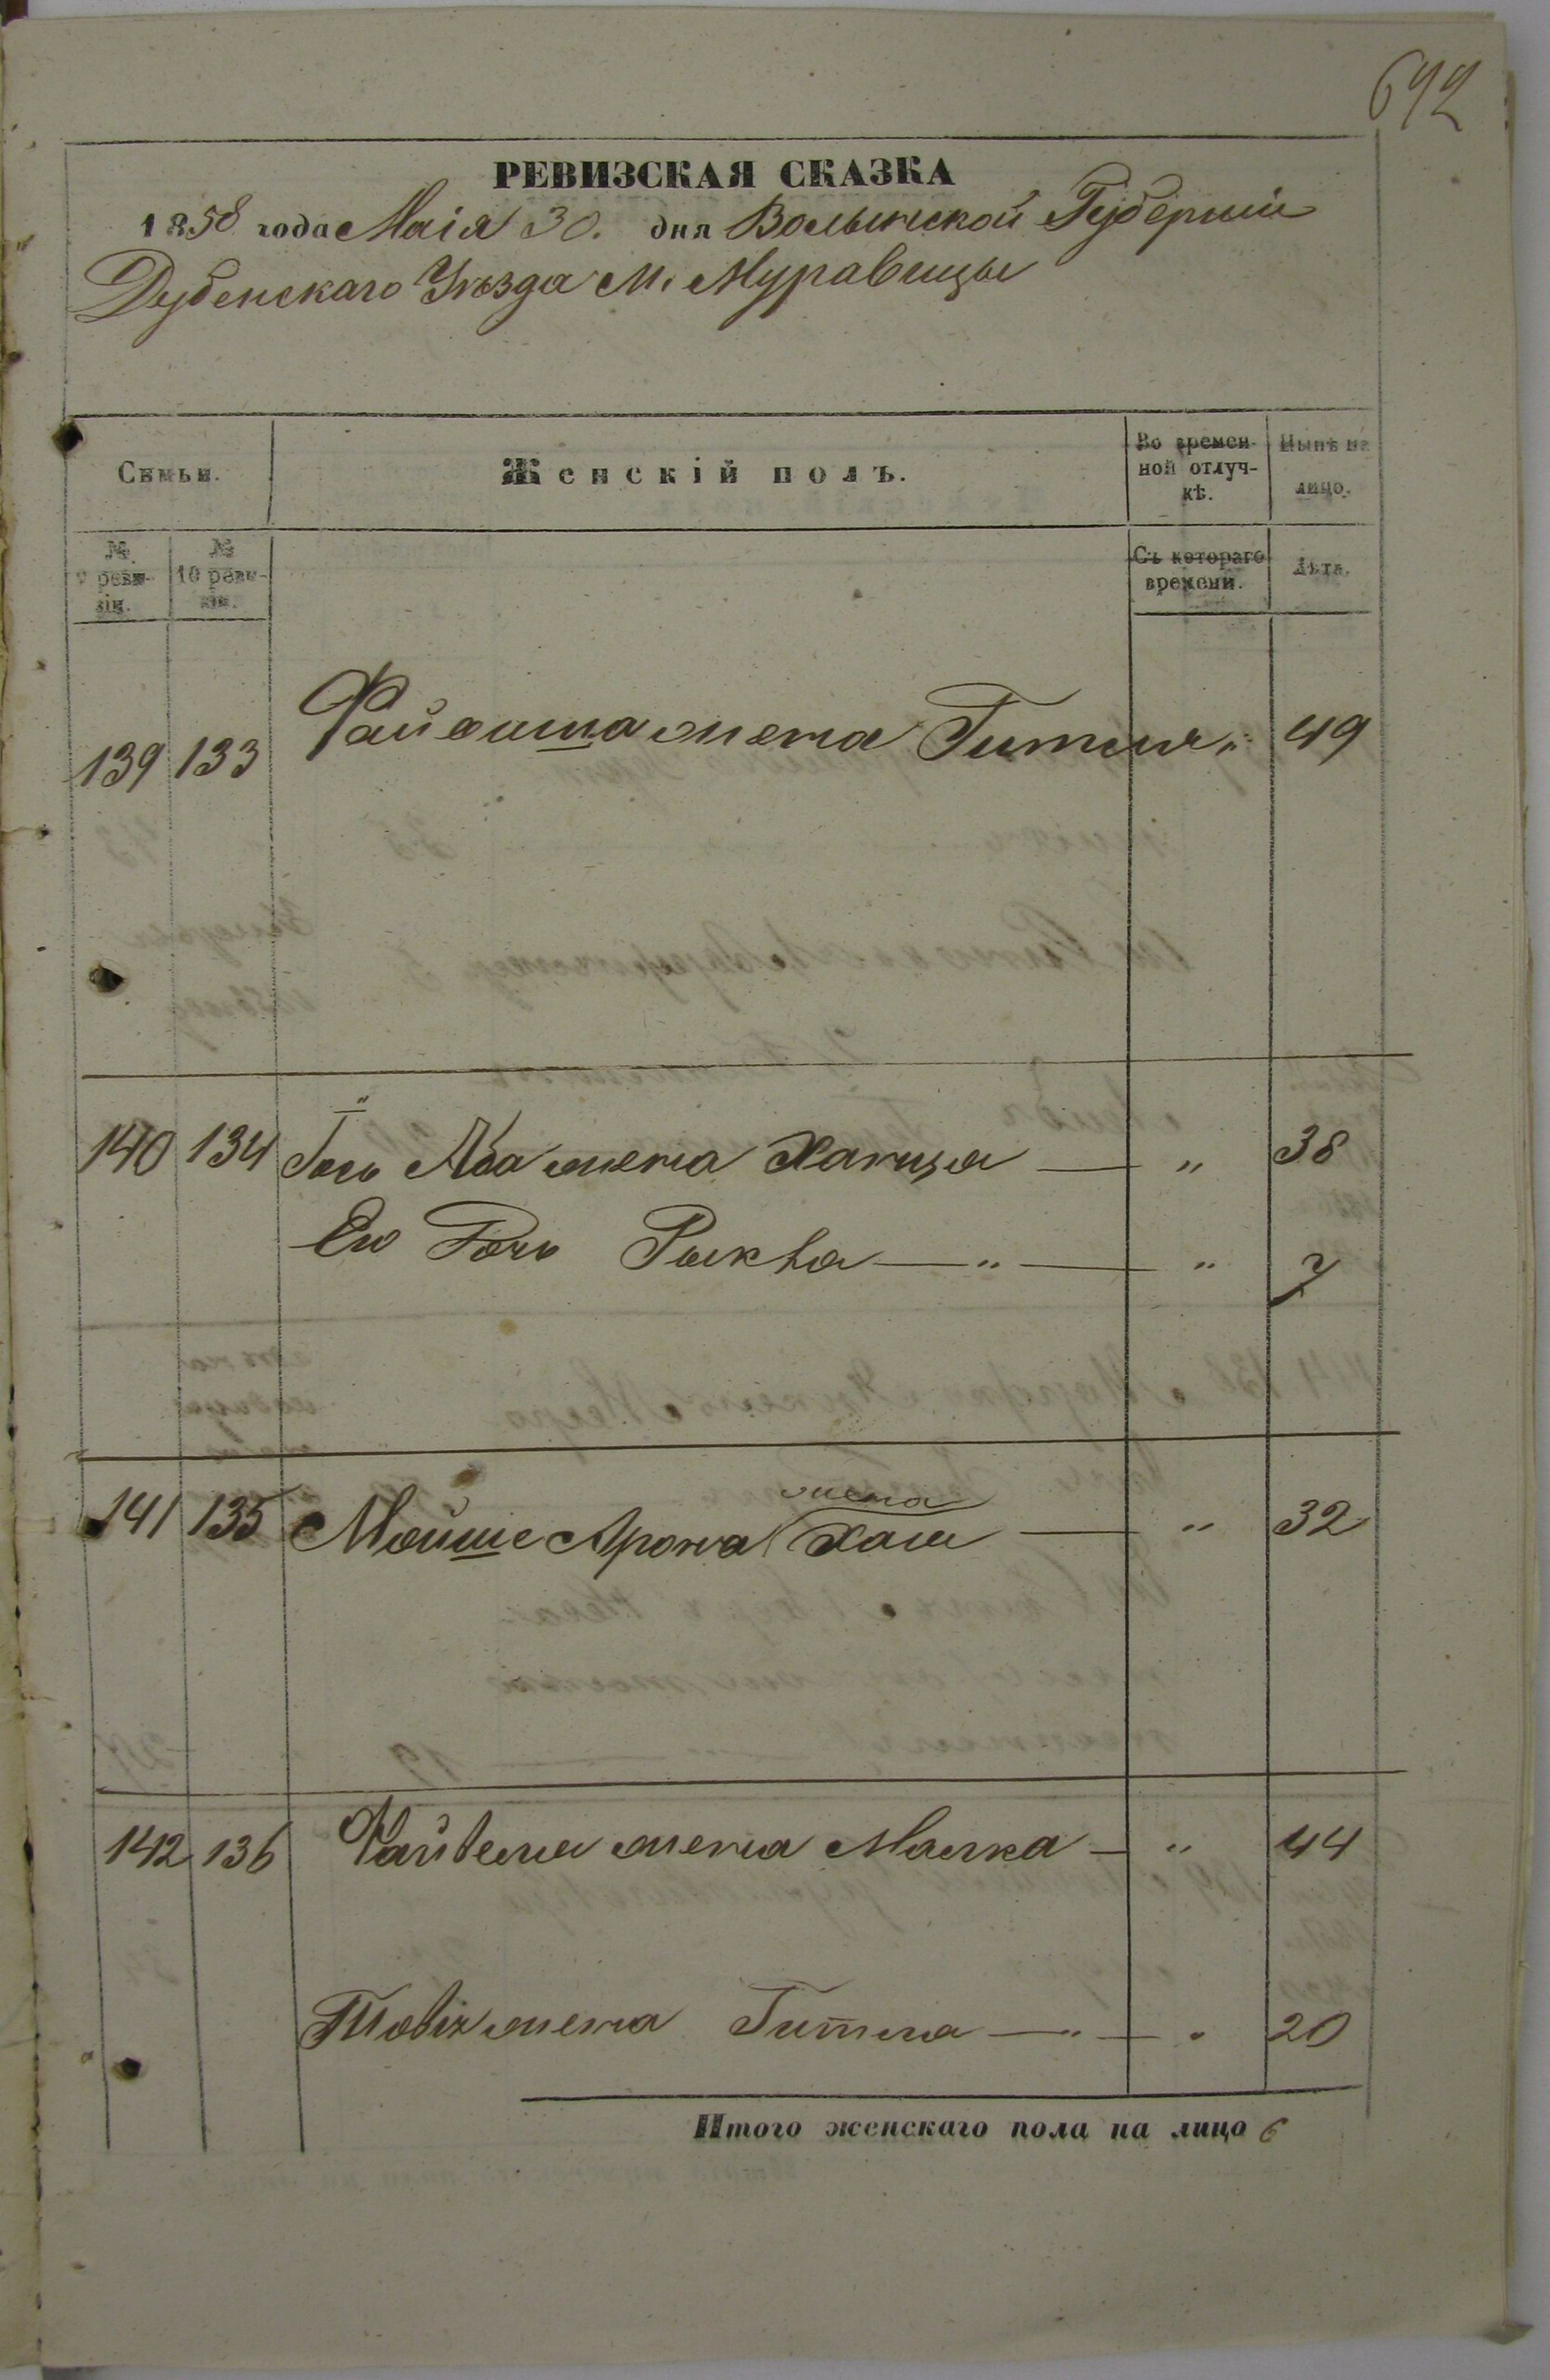 692
РЕВИЗСКАЯ СКАЗКА
1858 года Маія 30. дня Волынской Губерніи
Дубенскаго Уѣзда М. Муравицы
Семьи.
Женскій полъ.
Во времен-
ной отлуч-
кѣ.
Нынѣ на
лицо.
№
9 реви-
зіи.
№
10 реви-
зіи.
Съ котораго
времени.
Лѣта.
139 133 жена Гитля „ 49
140 134 Аба жена Ханця — „ 38
Ею Рыква — „ — „ 7
жена
141 135 Мойше Арона Хая — „ 32
142 136 Файвеля жена Малка — „ 44
Товія жена Гитля — „ — „ 20
Итого женскаго пола на лицо 6